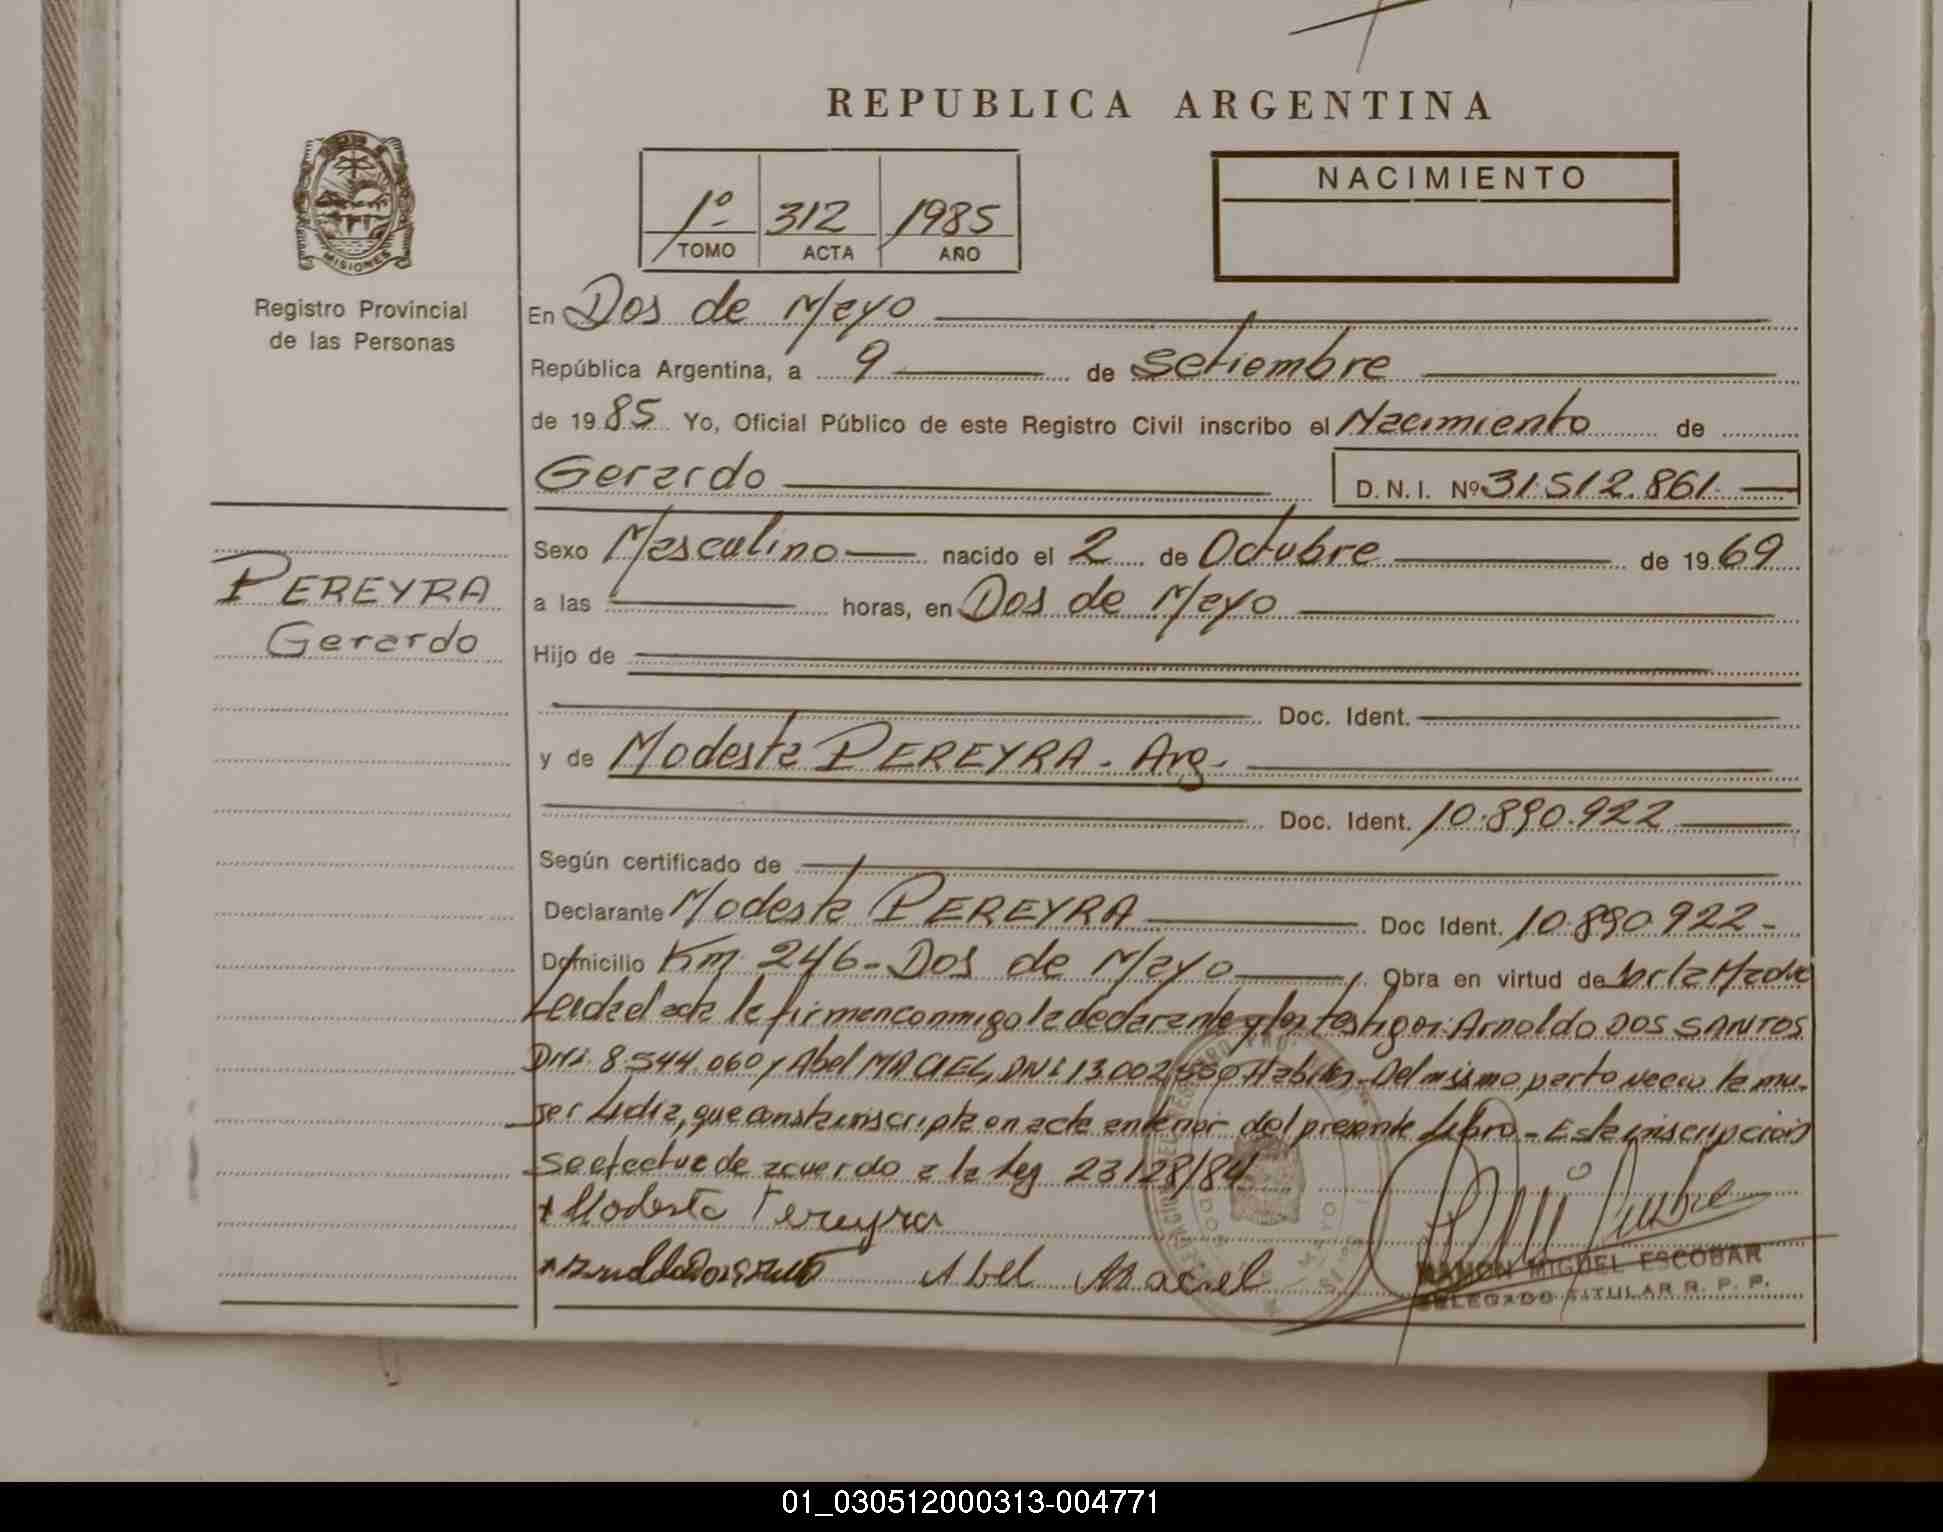 REPUBLICA ARGENTINA
NACIMIENTO
1º 312 1985
TOMO ACTA AÑO
MISIONES
Registro Provincial
de las Personas
PEREYRA
Gerardo
En Dos de Mayo
República Argentina, a 9 de Setiembre
de 1985 Yo, Oficial Público de este Registro Civil inscribo el Nacimiento de
Gerardo D.N.I. Nº 31.512.861
Sexo Masculino nacido el 2 de Octubre de 1969
a las horas, en Dos de Mayo
Hijo de
Doc. Ident.
y de Modesta PEREYRA - Arg.
Doc. Ident. 10.890.922
Según certificado de
Declarante Modesta PEREYRA Doc Ident. 10.890.922-
Domicilio Km. 246 - Dos de Mayo Obra en virtud de ser la Madre
Leida el acta la firman conmigo la declarante y los testigos: Arnoldo DOS SANTOS
DNI. 8.544.060 y Abel MACIEL, DNI 13.002 Habiles - Del mismo parto nacio la mu-
jer Lidia, que consta inscripta en acta anterior del presente Libro - Esta inscripción
se efectua de acuerdo a la Ley 23128/84
Modesta Pereyra
Abel Maciel
RAMON MIGUEL ESCOBAR
DELEGADO TITULAR R. P. P.
01_030512000313-004771